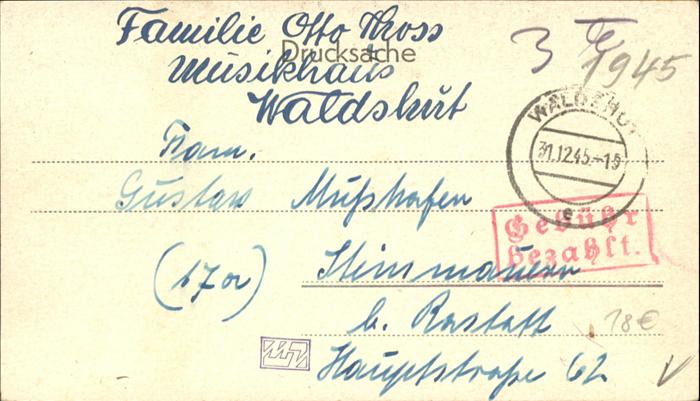 Familie Otto Kross
Drucksache
Musikhaus
Waldshut
3
1945
WALDSHUT
31.12.45.-15
e
Fam.
Gustav Mußhafen
Gebühr
bezahlt.
(17a) Steinmauern
b. Rastatt
18€
Hauptstraße 62